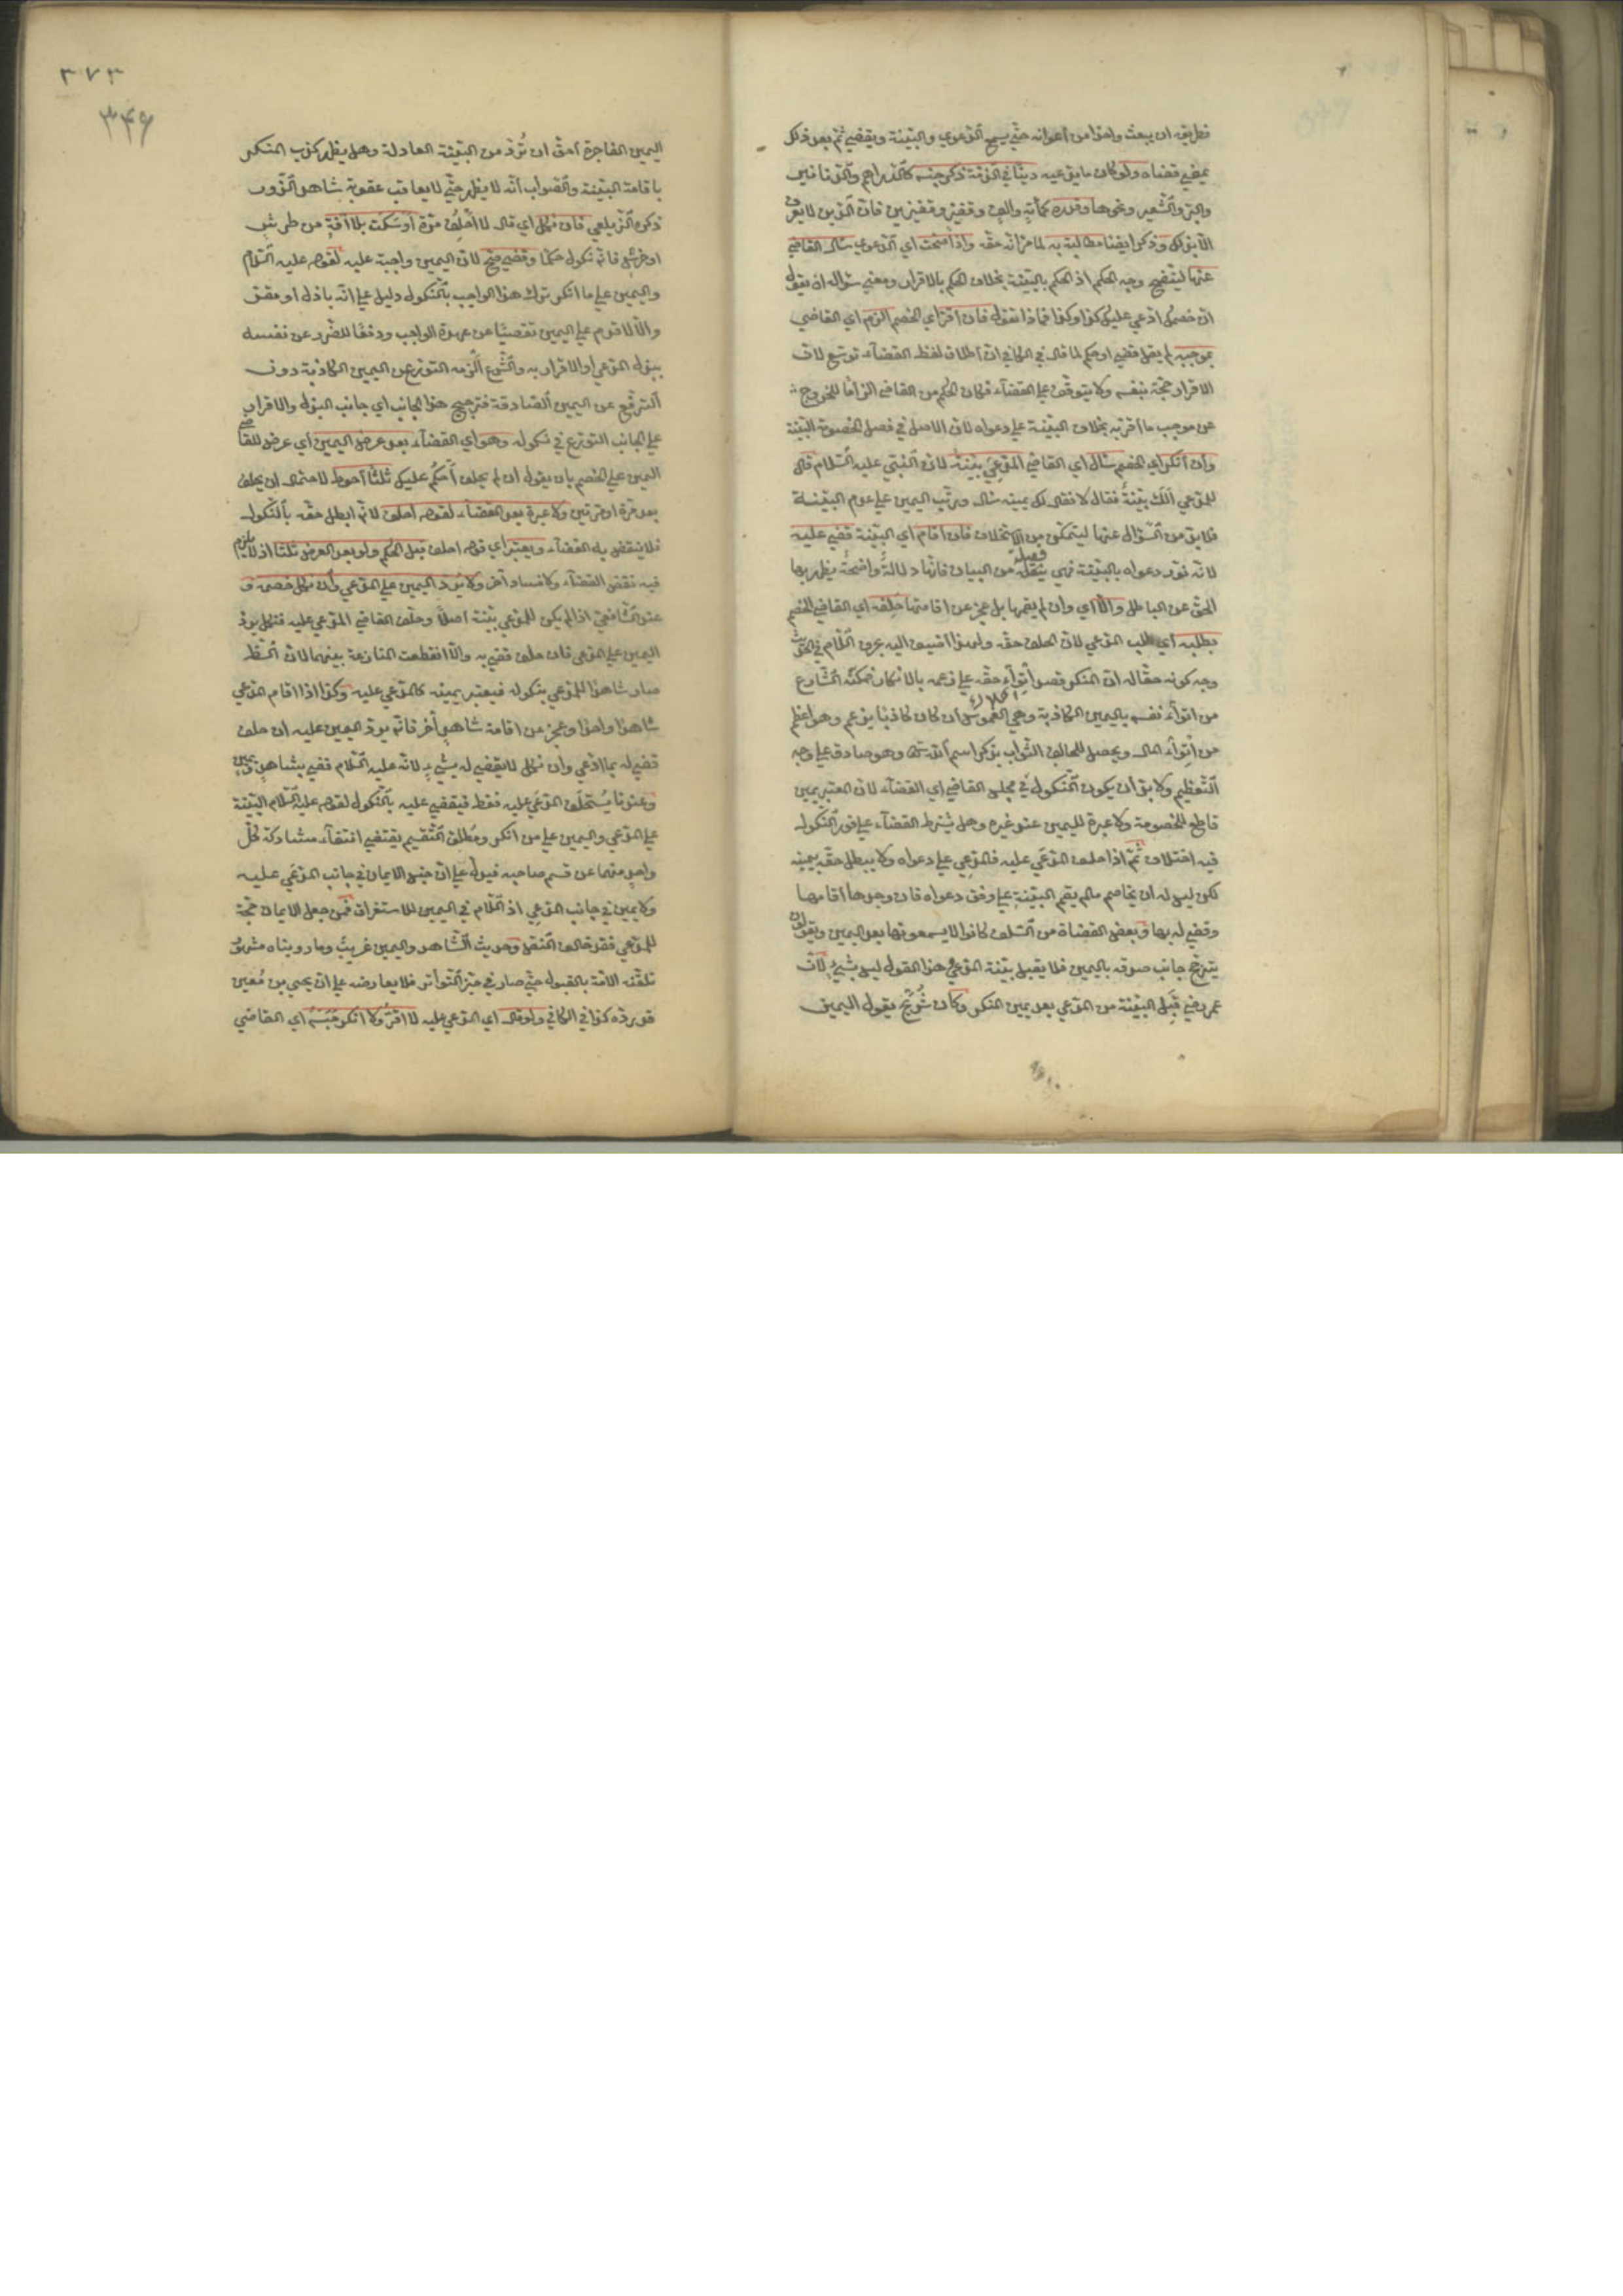 فطريقه ان يبعث واحدا من أعوانه حتّى يسمع الدّعوي والبيّنة ويقضي ثمّ بعد ذلك
يمضي قضاه ولو كان ما يدّعيه دينًا في الذّمّة ذكر جنسه كالدّراهم والدّنانير
والبرّ والشّعير ونحوها وقدره كمأية والف وقفيز وقفيزين فانّ الدّين لا يعرف
الّا بذلك وذكر ايضا مطالبته به لما مرّ انّه حقّه واذا صحّت اي الدّعوي سأل القاضي
عنها ليتّضح وجه الحكم اذ الحكم بالبيّنة يخلاف الحكم بالاقرار ومعني سؤاله ان يقول
انّ خصمك ادّعي عليك كذا وكذا فماذا تقول فان اقرّ اي الخصم الزم اي القاضي
بموجبه لم يقل قضي او حكم لما قال في الكافي انّ اطلاق لفظ القضآء توسّع لانّ
الاقرار حجّة بنفسه ولا يتوقّف علي القضآء فكان الحكم من القاضي الزامًا للخروج
عن موجب ما اقرّ به بخلاف البيّنة علي دعواه لانّ الاصل في فصل الخصومة البيّنة
وان انكر اي الخصم سأل اي القاضي المدّعي بيّنةً لانّ النّبيّ عليه السّلام قال
للمدّعي ألك بيّنةٌ فقال لا فقال لك يمينه سأل ورتّب اليمين علي عدم البيّنة
فلا بدّ من السّؤال عنها ليتمكّن من الاستحلاف فان أقام اي البيّنة قضي عليه
لانّه نوّر دعواه بالبيّنة فهي فيعلة من البيان فانّها دلالةٌ واضحةٌ يظهر بها
الحقّ عن الباطل والّا اي وان لم يقمها بل عجز عن اقامتها حلّفه اي القاضي الخصم
بطلبه اي طلب المدّعي لانّ الحلف حقّه ولهذا اضيف اليه بحرف اللّام في الحديث
وجه كونه حقّا له انّ المنكر قصد اتوآء حقّه علي زعمه بالانكار فمكّنه الشّارع
من اتوآء نفسه باليمين الكاذبة وهي الغموس ان كان كاذبا يزعم وهو اعظم
من اتوآء المال ويحصل للحالف الثّواب بذكر اسم الله تعالى وهو صادق علي وجه
التّعظيم ولا بدّ ان يكون النّكول في مجلس القاضي اي القضآء لانّ المعتبر يمين
قاطع للخصومة ولا عبرة لليمين عند غيره وهل يشترط القضآء علي فور النّكول
فيه اختلاف ثمّ اذا حلف المدّعي عليه فالمدّعي علي دعواه ولا يبطل حقّه بيمينه
لكن ليس له ان يخاصم مالم يقم البيّنة علي وفق دعواه فان وجدها اقامها
وقضي له بها وبعض القضاة من السّلف كانوا لا يسمعونها بعد اليمين ويقولون
يترجّح جانب صدقه باليمين فلا يقبل بيّنة المدّعي وهذا القول ليس بشيءٍ لانّ
عمر رضي قبِل البيّنة من المدّعي بعد يمين المنكر وكان شُريح يقول اليمين
٣٧٣
٣٤۶
اليمين الفاجرة احقّ ان تُردّ من البيّنة العادلة وهل يظهر كذب المنكر
باقامة البيّنة والصّواب انّه لا يظهر حتّي لا يعاقب عقوبة شاهد الزّور
ذكره الزّيلعي فان نكل اي قال لا أحلِفُ مرّة أو سَكت بلا آفةٍ من طرشٍ
او خرسٍ فانّه نكول حكمًا وقضي صحّ لانّ اليمين واجبة عليه لقوله عليه السّلام
واليمين علي ما انكر ترك هذا الواجب بالنّكول دليل علي انّه باذل او مقرّ
والّا لاقدم علي اليمين تفصّيًا عن عهدة الواجب ودفعًا للضّرر عن نفسه
ببذل المدّعي او الاقرار به والشّرع الزمه التورّع عن اليمين الكاذبة دون
الترفّع عن اليمين الصّادقة فترجيح هذا الجانب اي جانب البذل والاقرار
علي الجانب التورّع في نكوله وهو اي القضآء بعد عرض اليمين اي عرض القاضي
اليمين علي الخصم بان يقول ان لم يحلف أحكُم عليك ثلثًا أحوط لاحتمال ان يحلف
بعد مرّة او مرّتين ولا عبرة بعد القضآء لقوله احلف لانّه ابطل حقّه بالنّكول
فلا ينقض به القضآء ويعتبر اي قوله احلف قبل الحكم ولو بعد العرض ثلثا اذ لا يلزم
فيه نقض القضآء ولا فساد آخر ولا يُردّ اليمين علي المدّعي وان نكل خصمه و
عند الشّافعيّ اذا لم يكن للمدّعي بيّنة اصلًا وحلّف القاضي المدّعي عليه فنكل يردّ
اليمين علي المدّعي فان حلف قضي به والّا انقطعت المنازعة بينهما لانّ الظّاهر
صار شاهدا للمدّعي بنكوله فيعتبر يمينه كالمدّعي عليه وكذا اذا اقام المدّعي
شاهدا واحدا وعجز عن اقامة شاهدٍ آخر فانّه يردّ اليمين عليه ان حلف
قضي له بما ادّعي وان نكل لا يقضي له بشيءٍ لانّه عليه السّلام قضي بشاهدٍ ويمينٍ
وعندنا يُستحلَف المدّعي عليه فقط فيقضي عليه بالنّكول لقوله عليه السّلام البيّنة
علي المدّعي واليمين علي من انكر ومُطلق التّقسيم يقتضي انتفآء مشاركة كلّ
واحدٍ منهما عن قسم صاحبه فيدلّ علي انّ جنس الايمان في جانب المدّعي عليه
ولا يمين في جانب المدّعي اذ اللّام في اليمين للاستغراق فمن جعل الايمان حجّة
للمدّعي فقد خالف النصّ وحديث الشّاهد واليمين غريبٌ وما رويناه مشهورٌ
تلقّته الامّة بالقبول حتّي صار في حيّز التّواتر فلا يعارضه علي انّ يحيي بن مُعين
قد ردّه كذا في الكافي ولو قال اي المدّعي عليه لا اقرّ ولا انكر حَبَسَه اي القاضي